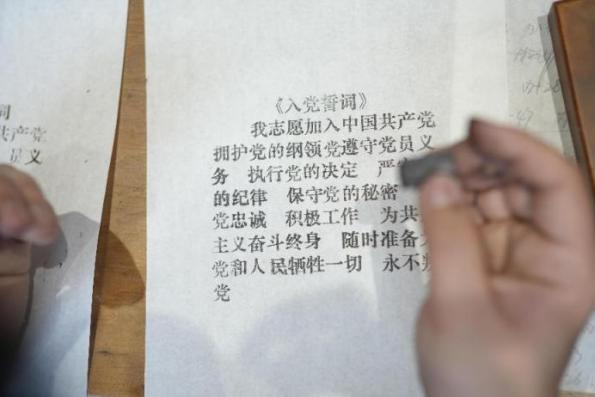 词
共产党
员义
《入党誓词》
我志愿加入中国共产党
拥护党的纲领党遵守党员义
务 执行党的决定 严
的纪律 保守党的秘密
党忠诚 积极工作 为共
主义奋斗终身 随时准备
党和人民牺牲一切 永不
党